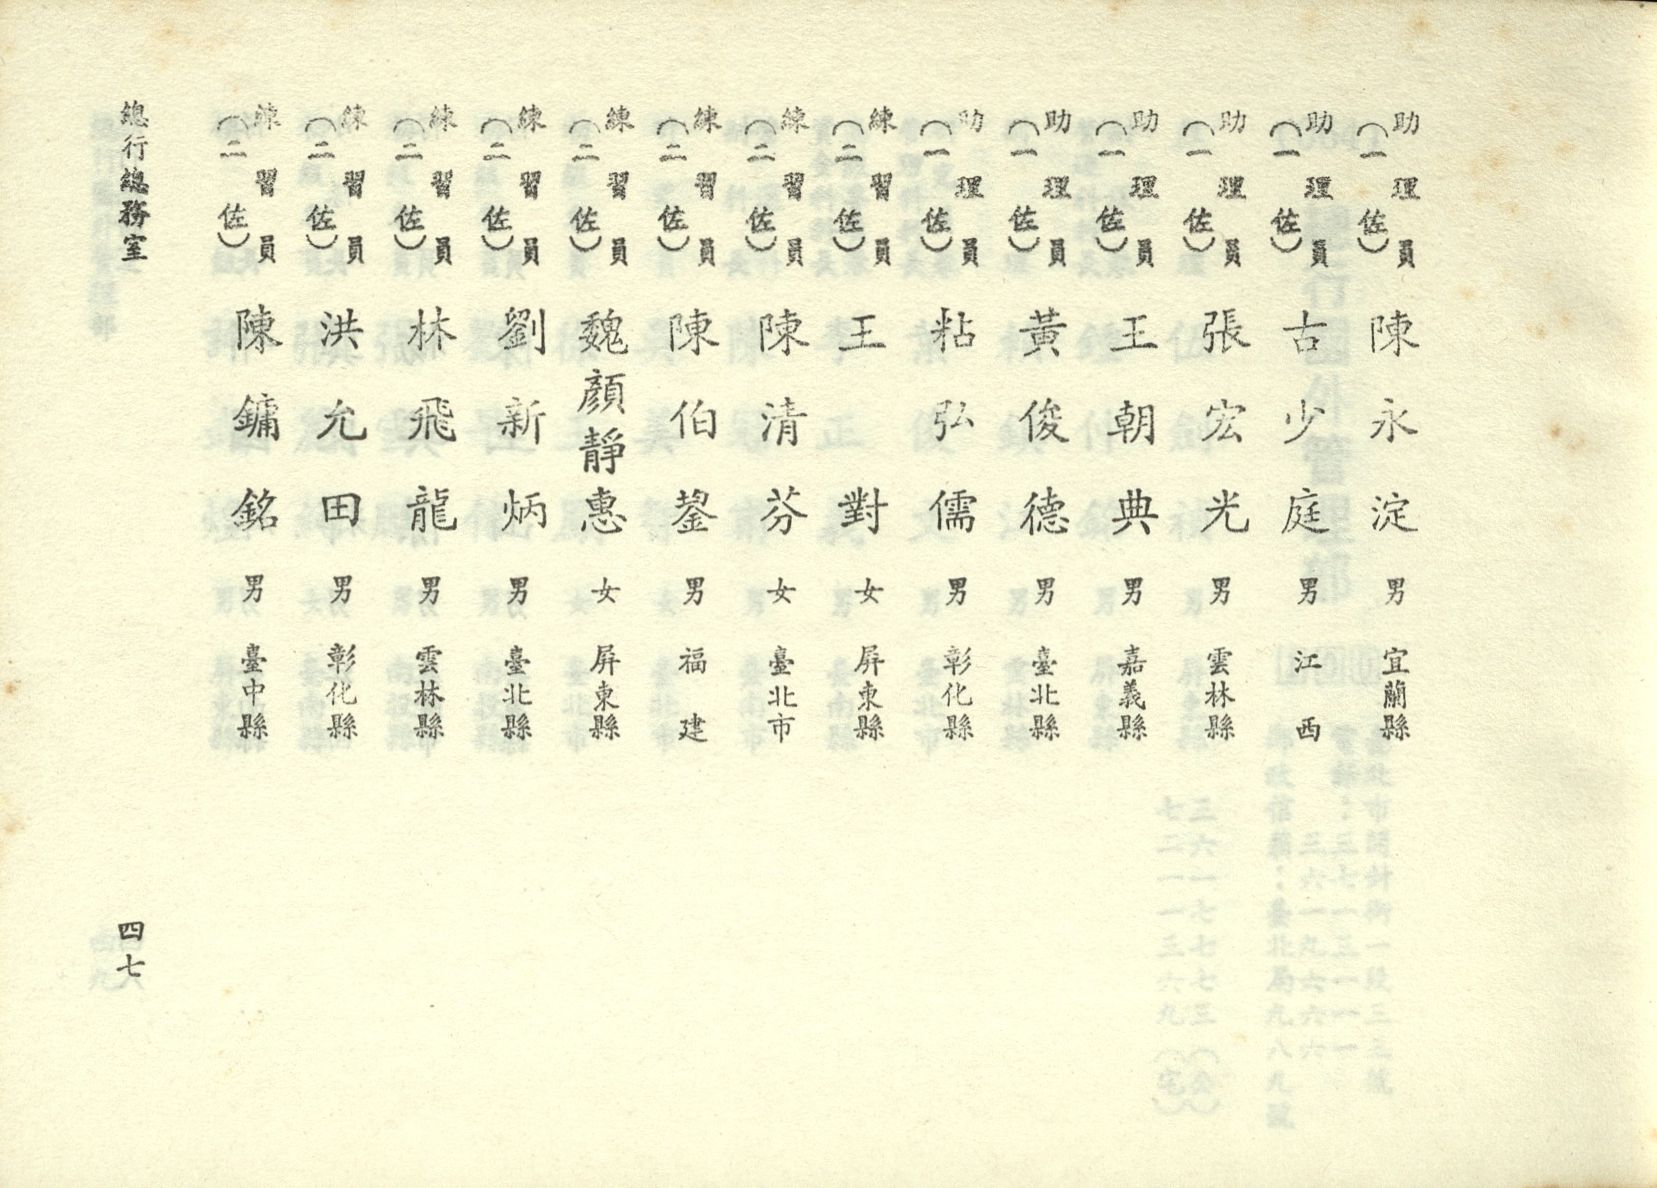 助理員（一佐） 陳永淀 男 宜蘭縣
助理員（一佐） 古少庭 男 江西
助理員（一佐） 張宏光 男 雲林縣
助理員（一佐） 王朝典 男 嘉義縣
助理員（一佐） 黃俊德 男 臺北縣
助理員（一佐） 粘弘儒 男 彰化縣
練習員（二佐） 王對 女 屏東縣
練習員（二佐） 陳清芬 女 臺北市
練習員（二佐） 陳伯鋆 男 福建
練習員（二佐） 魏顏靜惠 女 屏東縣
練習員（二佐） 劉新炳 男 臺北縣
練習員（二佐） 林飛龍 男 雲林縣
練習員（二佐） 洪允田 男 彰化縣
練習員（二佐） 陳鏞銘 男 臺中縣
總行總務室
四七